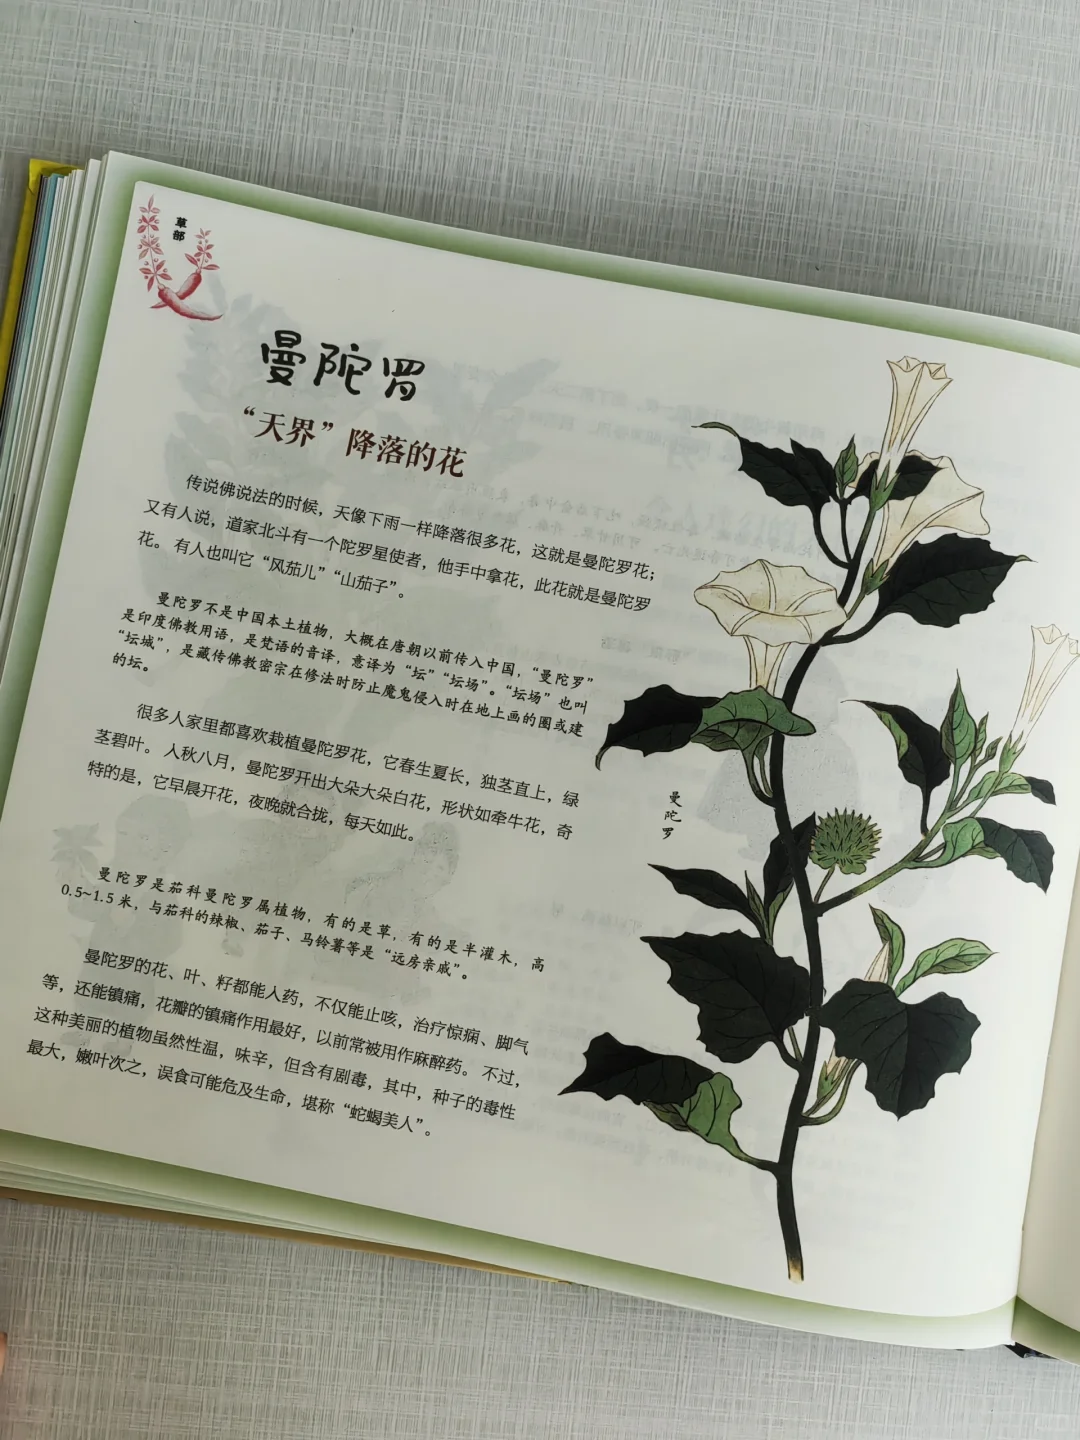 草部
曼陀罗
“天界”降落的花
传说佛说法的时候，天像下雨一样降落很多花，这就是曼陀罗花；
又有人说，道家北斗有一个陀罗星使者，他手中拿花，此花就是曼陀罗
花。有人也叫它“风茄儿”“山茄子”。
曼陀罗不是中国本土植物，大概在唐朝以前传入中国，“曼陀罗”
是印度佛教用语，是梵语的音译，意译为“坛”“坛场”。“坛场”也叫
“坛城”，是藏传佛教密宗在修法时防止魔鬼侵入时在地上画的圈或建
的坛。
很多人家里都喜欢栽植曼陀罗花，它春生夏长，独茎直上，绿
茎碧叶。人秋八月，曼陀罗开出大朵大朵白花，形状如牵牛花，奇
特的是，它早晨开花，夜晚就合拢，每天如此。
曼陀罗是茄科曼陀罗属植物，有的是草，有的是半灌木，高
0.5~1.5米，与茄科的辣椒、茄子、马铃薯等是“远房亲戚”。
曼陀罗的花、叶、籽都能入药，不仅能止咳，治疗惊痫、脚气
等，还能镇痛，花瓣的镇痛作用最好，以前常被用作麻醉药。不过，
这种美丽的植物虽然性温，味辛，但含有剧毒，其中，种子的毒性
最大，嫩叶次之，误食可能危及生命，堪称“蛇蝎美人”。
曼陀罗